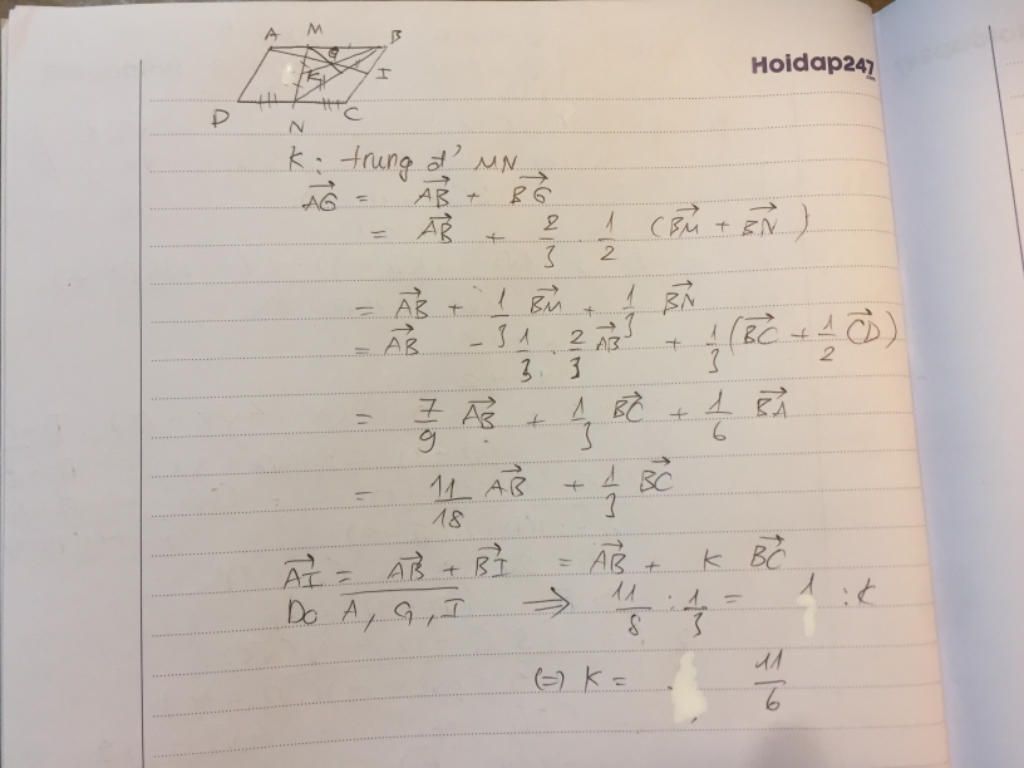 A M B
G
K I
D N C
Hoidap247
.com
K : trung đ' MN
$\overrightarrow{AG} = \overrightarrow{AB} + \overrightarrow{BG}$
$= \overrightarrow{AB} + \frac{2}{3} \cdot \frac{1}{2} (\overrightarrow{BM} + \overrightarrow{BN})$
$= \overrightarrow{AB} + \frac{1}{3} \overrightarrow{BM} + \frac{1}{3} \overrightarrow{BN}$
$= \overrightarrow{AB} - \frac{1}{3} \cdot \frac{2}{3} \overrightarrow{AB} + \frac{1}{3} (\overrightarrow{BC} + \frac{1}{2} \overrightarrow{CD})$
$= \frac{7}{9} \overrightarrow{AB} + \frac{1}{3} \overrightarrow{BC} + \frac{1}{6} \overrightarrow{BA}$
$= \frac{11}{18} \overrightarrow{AB} + \frac{1}{3} \overrightarrow{BC}$
$\overrightarrow{AI} = \overrightarrow{AB} + \overrightarrow{BI} = \overrightarrow{AB} + K \overrightarrow{BC}$
Do $\overline{A, G, I}$ $\Rightarrow \frac{11}{8} : \frac{1}{3} = 1 : K$
$(=) K = \frac{11}{6}$